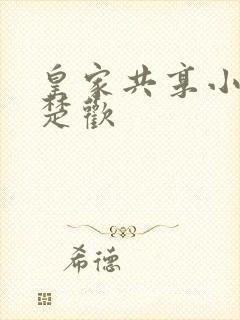 皇家共享小
楚歡
希德